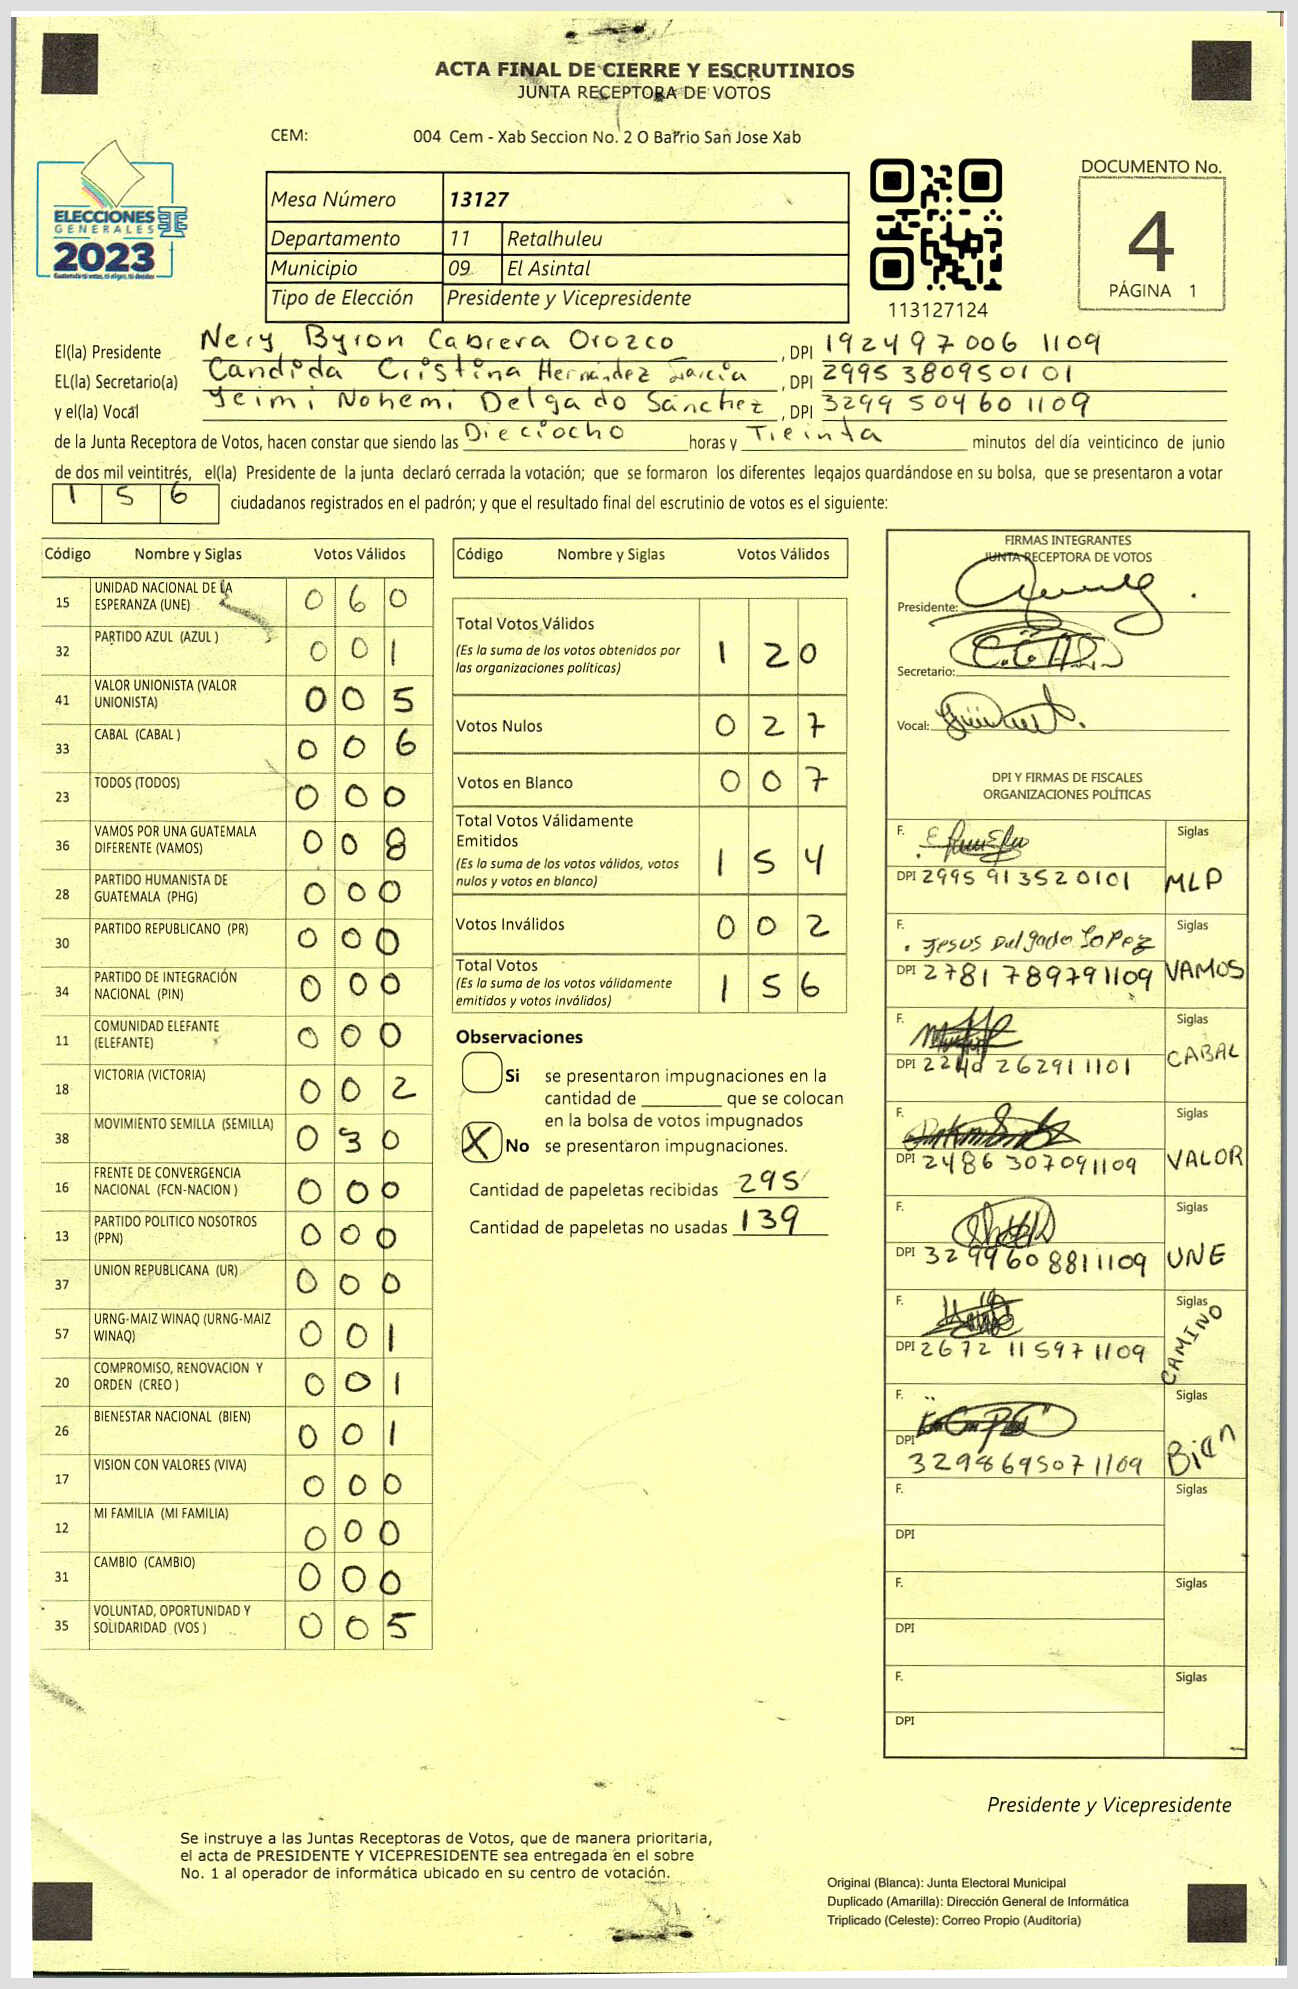 ACTA FINAL DE CIERRE Y ESCRUTINIOS
JUNTA RECEPTORA DE VOTOS
CEM: 004 Cem - Xab Seccion No. 2 O Barrio San Jose Xab
ELECCIONES
GENERALES
2023
Mesa Número 13127
Departamento 11 Retalhuleu
Municipio 09 El Asintal
Tipo de Elección Presidente y Vicepresidente
113127124
DOCUMENTO No.
4
PÁGINA 1
El(la) Presidente Nery Byron Cabrera Orozco, DPI 192497006 1109
EL(la) Secretario(a) Candida Cristina Hernández García, DPI 2995380950101
y el(la) Vocal Yeimi Nohemi Delgado Sánchez, DPI 3299504601109
de la Junta Receptora de Votos, hacen constar que siendo las Dieciocho horas y Tieinta minutos del día veinticinco de junio
de dos mil veintitrés, el(la) Presidente de la junta declaró cerrada la votación; que se formaron los diferentes legajos guardándose en su bolsa, que se presentaron a votar
156 ciudadanos registrados en el padrón; y que el resultado final del escrutinio de votos es el siguiente:
Código Nombre y Siglas Votos Válidos
15 UNIDAD NACIONAL DE LA ESPERANZA (UNE) 060
32 PARTIDO AZUL (AZUL ) 001
41 VALOR UNIONISTA (VALOR UNIONISTA) 005
33 CABAL (CABAL ) 006
23 TODOS (TODOS) 000
36 VAMOS POR UNA GUATEMALA DIFERENTE (VAMOS) 008
28 PARTIDO HUMANISTA DE GUATEMALA (PHG) 000
30 PARTIDO REPUBLICANO (PR) 000
34 PARTIDO DE INTEGRACIÓN NACIONAL (PIN) 000
11 COMUNIDAD ELEFANTE (ELEFANTE) 000
18 VICTORIA (VICTORIA) 002
38 MOVIMIENTO SEMILLA (SEMILLA) 030
16 FRENTE DE CONVERGENCIA NACIONAL (FCN-NACION ) 000
13 PARTIDO POLITICO NOSOTROS (PPN) 000
37 UNION REPUBLICANA (UR) 000
57 URNG-MAIZ WINAQ (URNG-MAIZ WINAQ) 001
20 COMPROMISO, RENOVACION Y ORDEN (CREO ) 001
26 BIENESTAR NACIONAL (BIEN) 001
17 VISION CON VALORES (VIVA) 000
12 MI FAMILIA (MI FAMILIA) 000
31 CAMBIO (CAMBIO) 000
35 VOLUNTAD, OPORTUNIDAD Y SOLIDARIDAD (VOS ) 005
Código Nombre y Siglas Votos Válidos
Total Votos Válidos 120
(Es la suma de los votos obtenidos por
las organizaciones políticas)
Votos Nulos 027
Votos en Blanco 007
Total Votos Válidamente
Emitidos 154
(Es la suma de los votos válidos, votos
nulos y votos en blanco)
Votos Inválidos 002
Total Votos 156
(Es la suma de los votos válidamente
emitidos y votos inválidos)
Observaciones
Si se presentaron impugnaciones en la
cantidad de ________ que se colocan
en la bolsa de votos impugnados
X No se presentaron impugnaciones.
Cantidad de papeletas recibidas 295
Cantidad de papeletas no usadas 139
FIRMAS INTEGRANTES
JUNTA RECEPTORA DE VOTOS
Presidente:
Secretario:
Vocal:
DPI Y FIRMAS DE FISCALES
ORGANIZACIONES POLÍTICAS
F. Siglas
DPI 2995 913520101 MLP
F. Jesus Delgado Lopez Siglas
DPI 2781 789791109 VAMOS
F. Siglas
DPI 262911101 CABAL
F. Siglas
DPI 2486 307091109 VALOR
F. Siglas
DPI 3299608811109 UNE
F. Siglas
DPI 2672 115971109 CAMINO
F. Siglas
DPI 3298695071109 Bien
F. Siglas
DPI
F. Siglas
DPI
F. Siglas
DPI
Presidente y Vicepresidente
Se instruye a las Juntas Receptoras de Votos, que de manera prioritaria,
el acta de PRESIDENTE Y VICEPRESIDENTE sea entregada en el sobre
No. 1 al operador de informática ubicado en su centro de votación.
Original (Blanca): Junta Electoral Municipal
Duplicado (Amarilla): Dirección General de Informática
Triplicado (Celeste): Correo Propio (Auditoría)